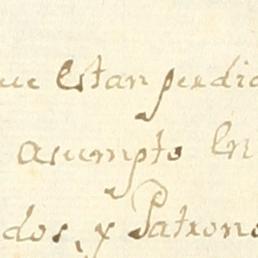 ue estan perdid
asumpto En
dos, y Patrono